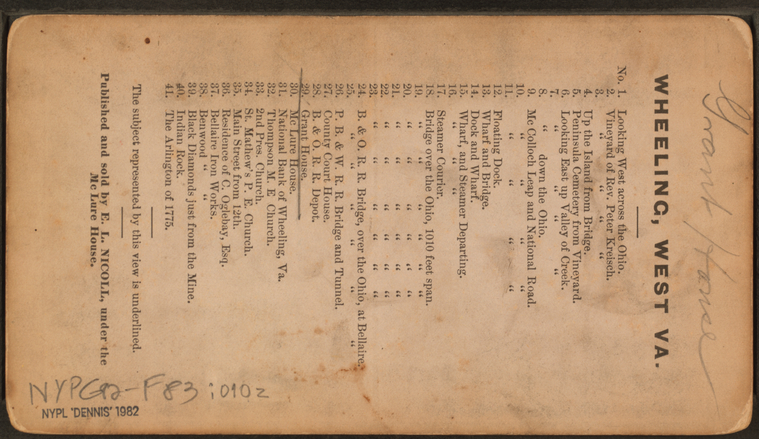 Grant House
WHEELING, WEST VA.
No. 1. Looking West across the Ohio.
2. Vineyard of Rev. Peter Kreisch.
3. " " " "
4. Up the Island from Bridge.
5. Peninsula Cemetery from Vineyard.
6. Looking East up Valley of Creek.
7. " " " "
8. " down the Ohio.
9. Mc Colloch Leap and National Road.
10. " " " "
11. " " " "
12. Floating Dock.
13. Wharf and Bridge.
14. Dock and Wharf.
15. Wharf, and Steamer Departing.
16.
17. Steamer Courier.
18. Bridge over the Ohio, 1010 feet span.
19. " " " " "
20. " " " " "
21. " " " " "
22. " " " " "
23. " " " " "
24. B. & O. R. R. Bridge, over the Ohio, at Bellaire.
25. " " " " "
26. P. B. & W. R. R. Bridge and Tunnel.
27. County Court House.
28. B. & O. R. R. Depot.
29. Grant House.
30. Mc Lure House.
31. National Bank of Wheeling, Va.
32. Thompson M. E. Church.
33. 2nd Pres. Church.
34. St. Mathew's P. E. Church.
35. Main Street from 12th.
36. Residence of C. Oglebay, Esq.
37. Bellaire Iron Works.
38. Benwood " "
39. Black Diamonds just from the Mine.
40. Indian Rock.
41. The Arlington of 1775.
The subject represented by this view is underlined.
Published and sold by E. L. NICOLL, under the
Mc Lure House.
NYPG92-F83 :0102
NYPL 'DENNIS' 1982